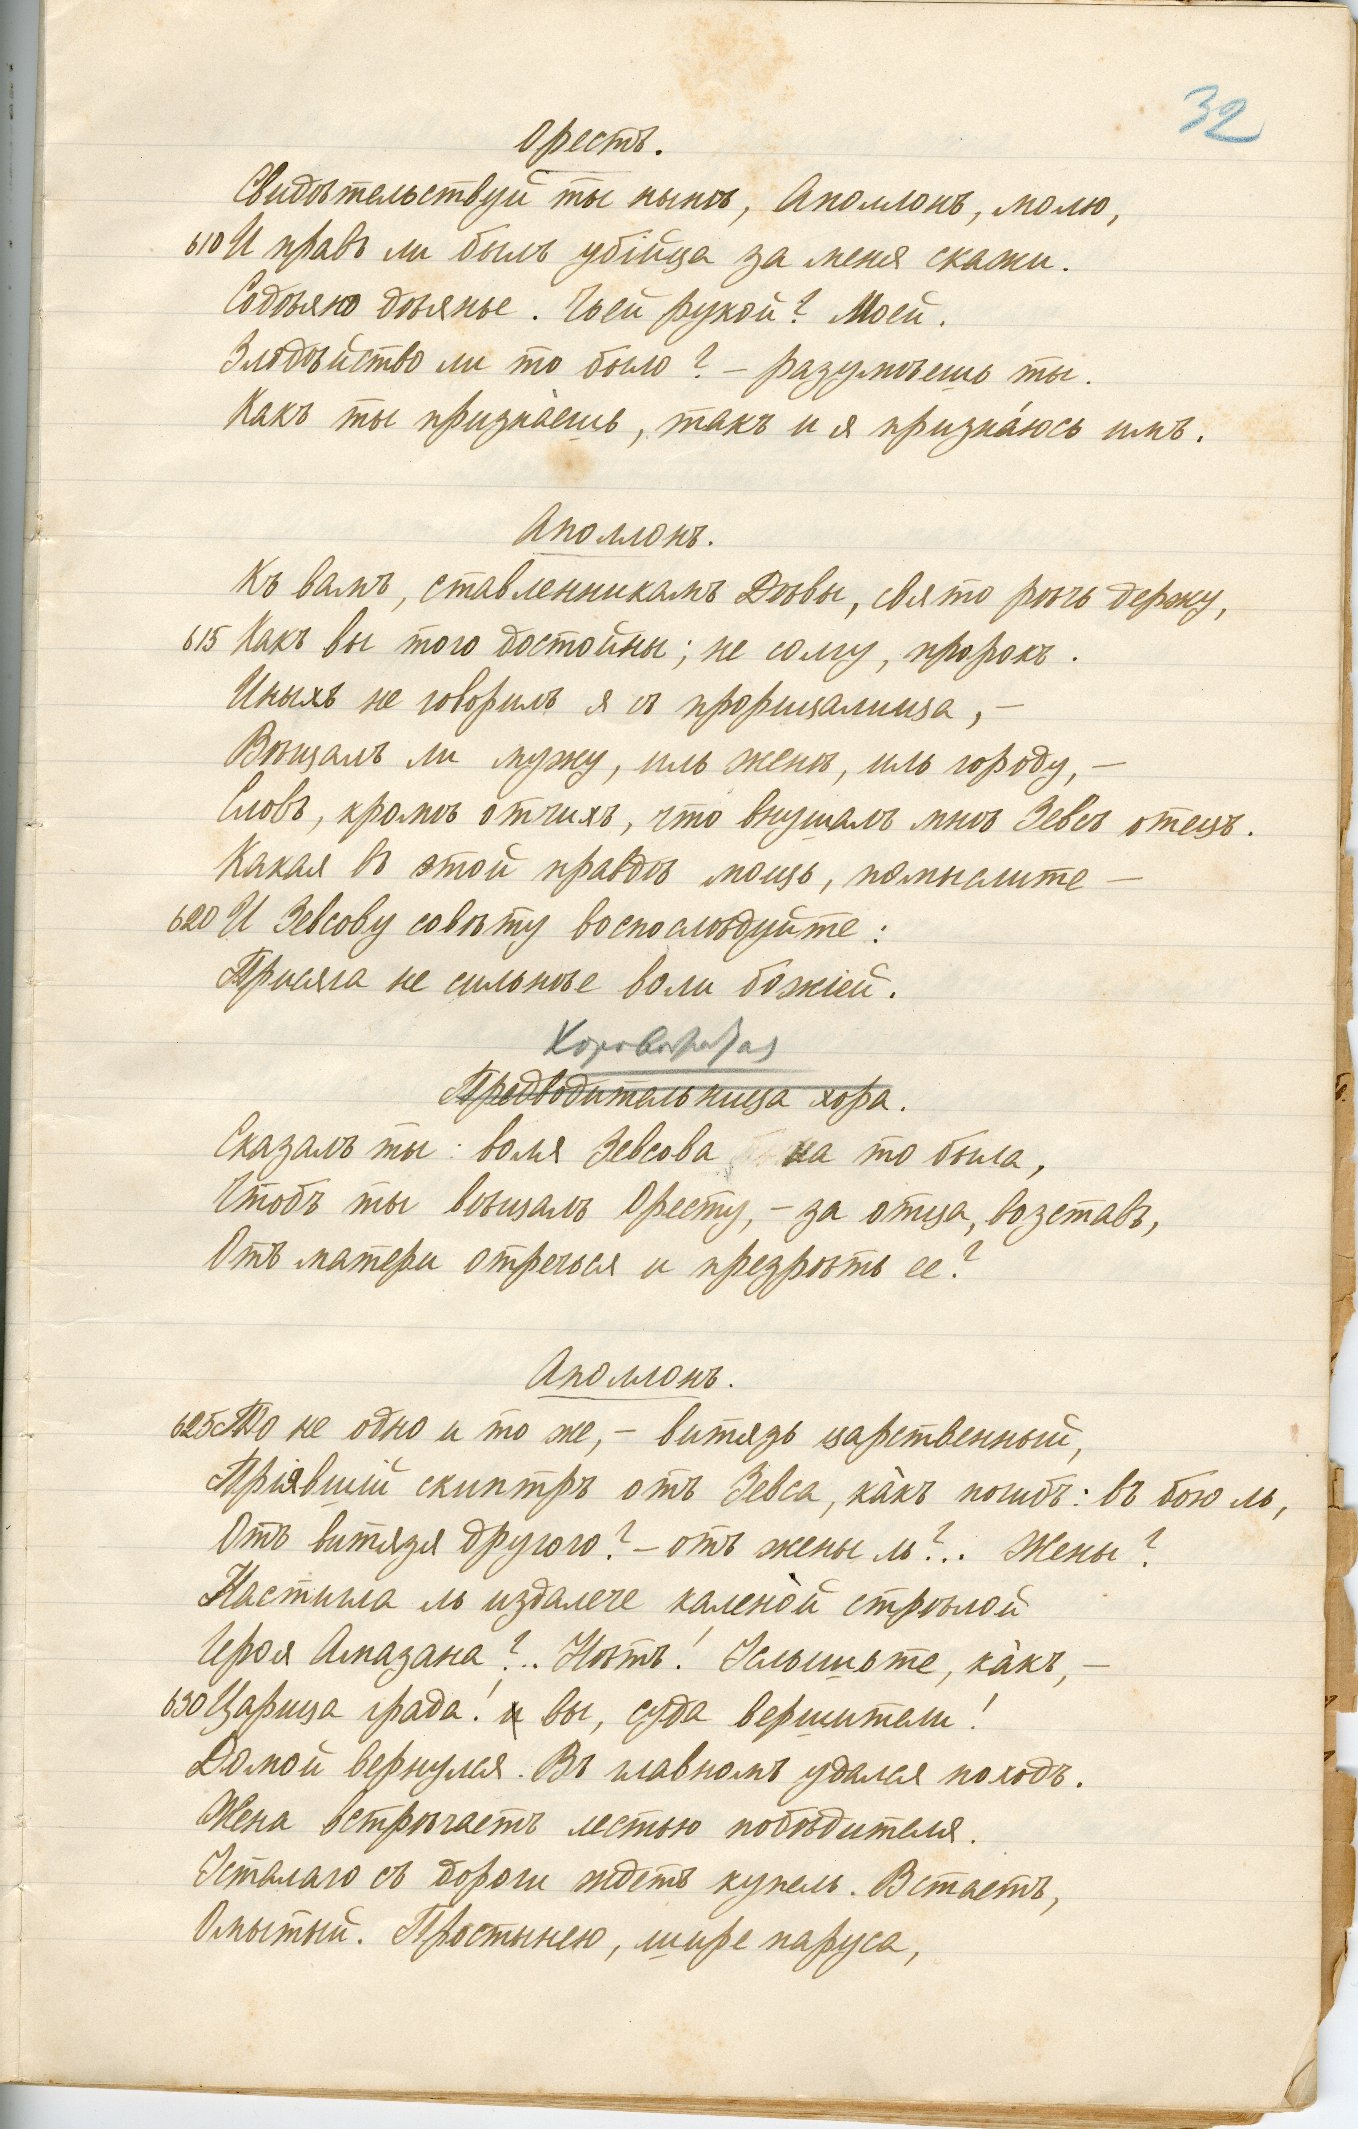 32
Орестъ.
Свидѣтельствуй ты нынѣ, Аполлонъ, молю,
610 И правъ ли былъ убійца за меня скажи.
Содѣяно дѣянье. Чьей рукой? Моей.
Злодѣйство ли то было? – разумѣешь ты.
Какъ ты призна́ешь, такъ и я призна́юсь имъ.
Аполлонъ.
Къ вамъ, ставленникамъ Дѣвы, свято рѣчь держу,
615 Какъ вы того достойны; не солгу, пророкъ.
Иныхъ не говорилъ я съ прорицалища, –
Вѣщалъ ли мужу, иль женѣ, иль городу, –
Словъ, кромѣ отчихъ, что внушалъ мнѣ Зевсъ отецъ.
Какая въ этой правдѣ мощь, помыслите –
620 И Зевсову совѣту воспослѣдуйте:
Присяга не сильнѣе воли божіей.
Хоровожатая
Предводительница хора.
Сказалъ ты: воля Зевсова на то была,
Чтобъ ты вѣщалъ Оресту, – за отца, возставъ,
Отъ матери отречься и презрѣть ее?
Аполлонъ.
625 То не одно и то же, – витязь царственный,
Пріявшій скиптръ отъ Зевса, ка̀къ погибъ: въ бою ль,
Отъ витязя другого? – отъ жены ль?.. Жены?
Настигла ль издалече калено̀й стрѣлой
Героя Амазона?.. Нѣтъ! Услышьте, ка̀къ, –
630 Царица града! и вы, суда вершители!
Домой вернулся. Въ главномъ удался походъ.
Жена встрѣчаетъ лестью побѣдителя.
Усталаго съ дороги ждетъ купель. Встаетъ,
Омытый. Простынею, шире паруса,